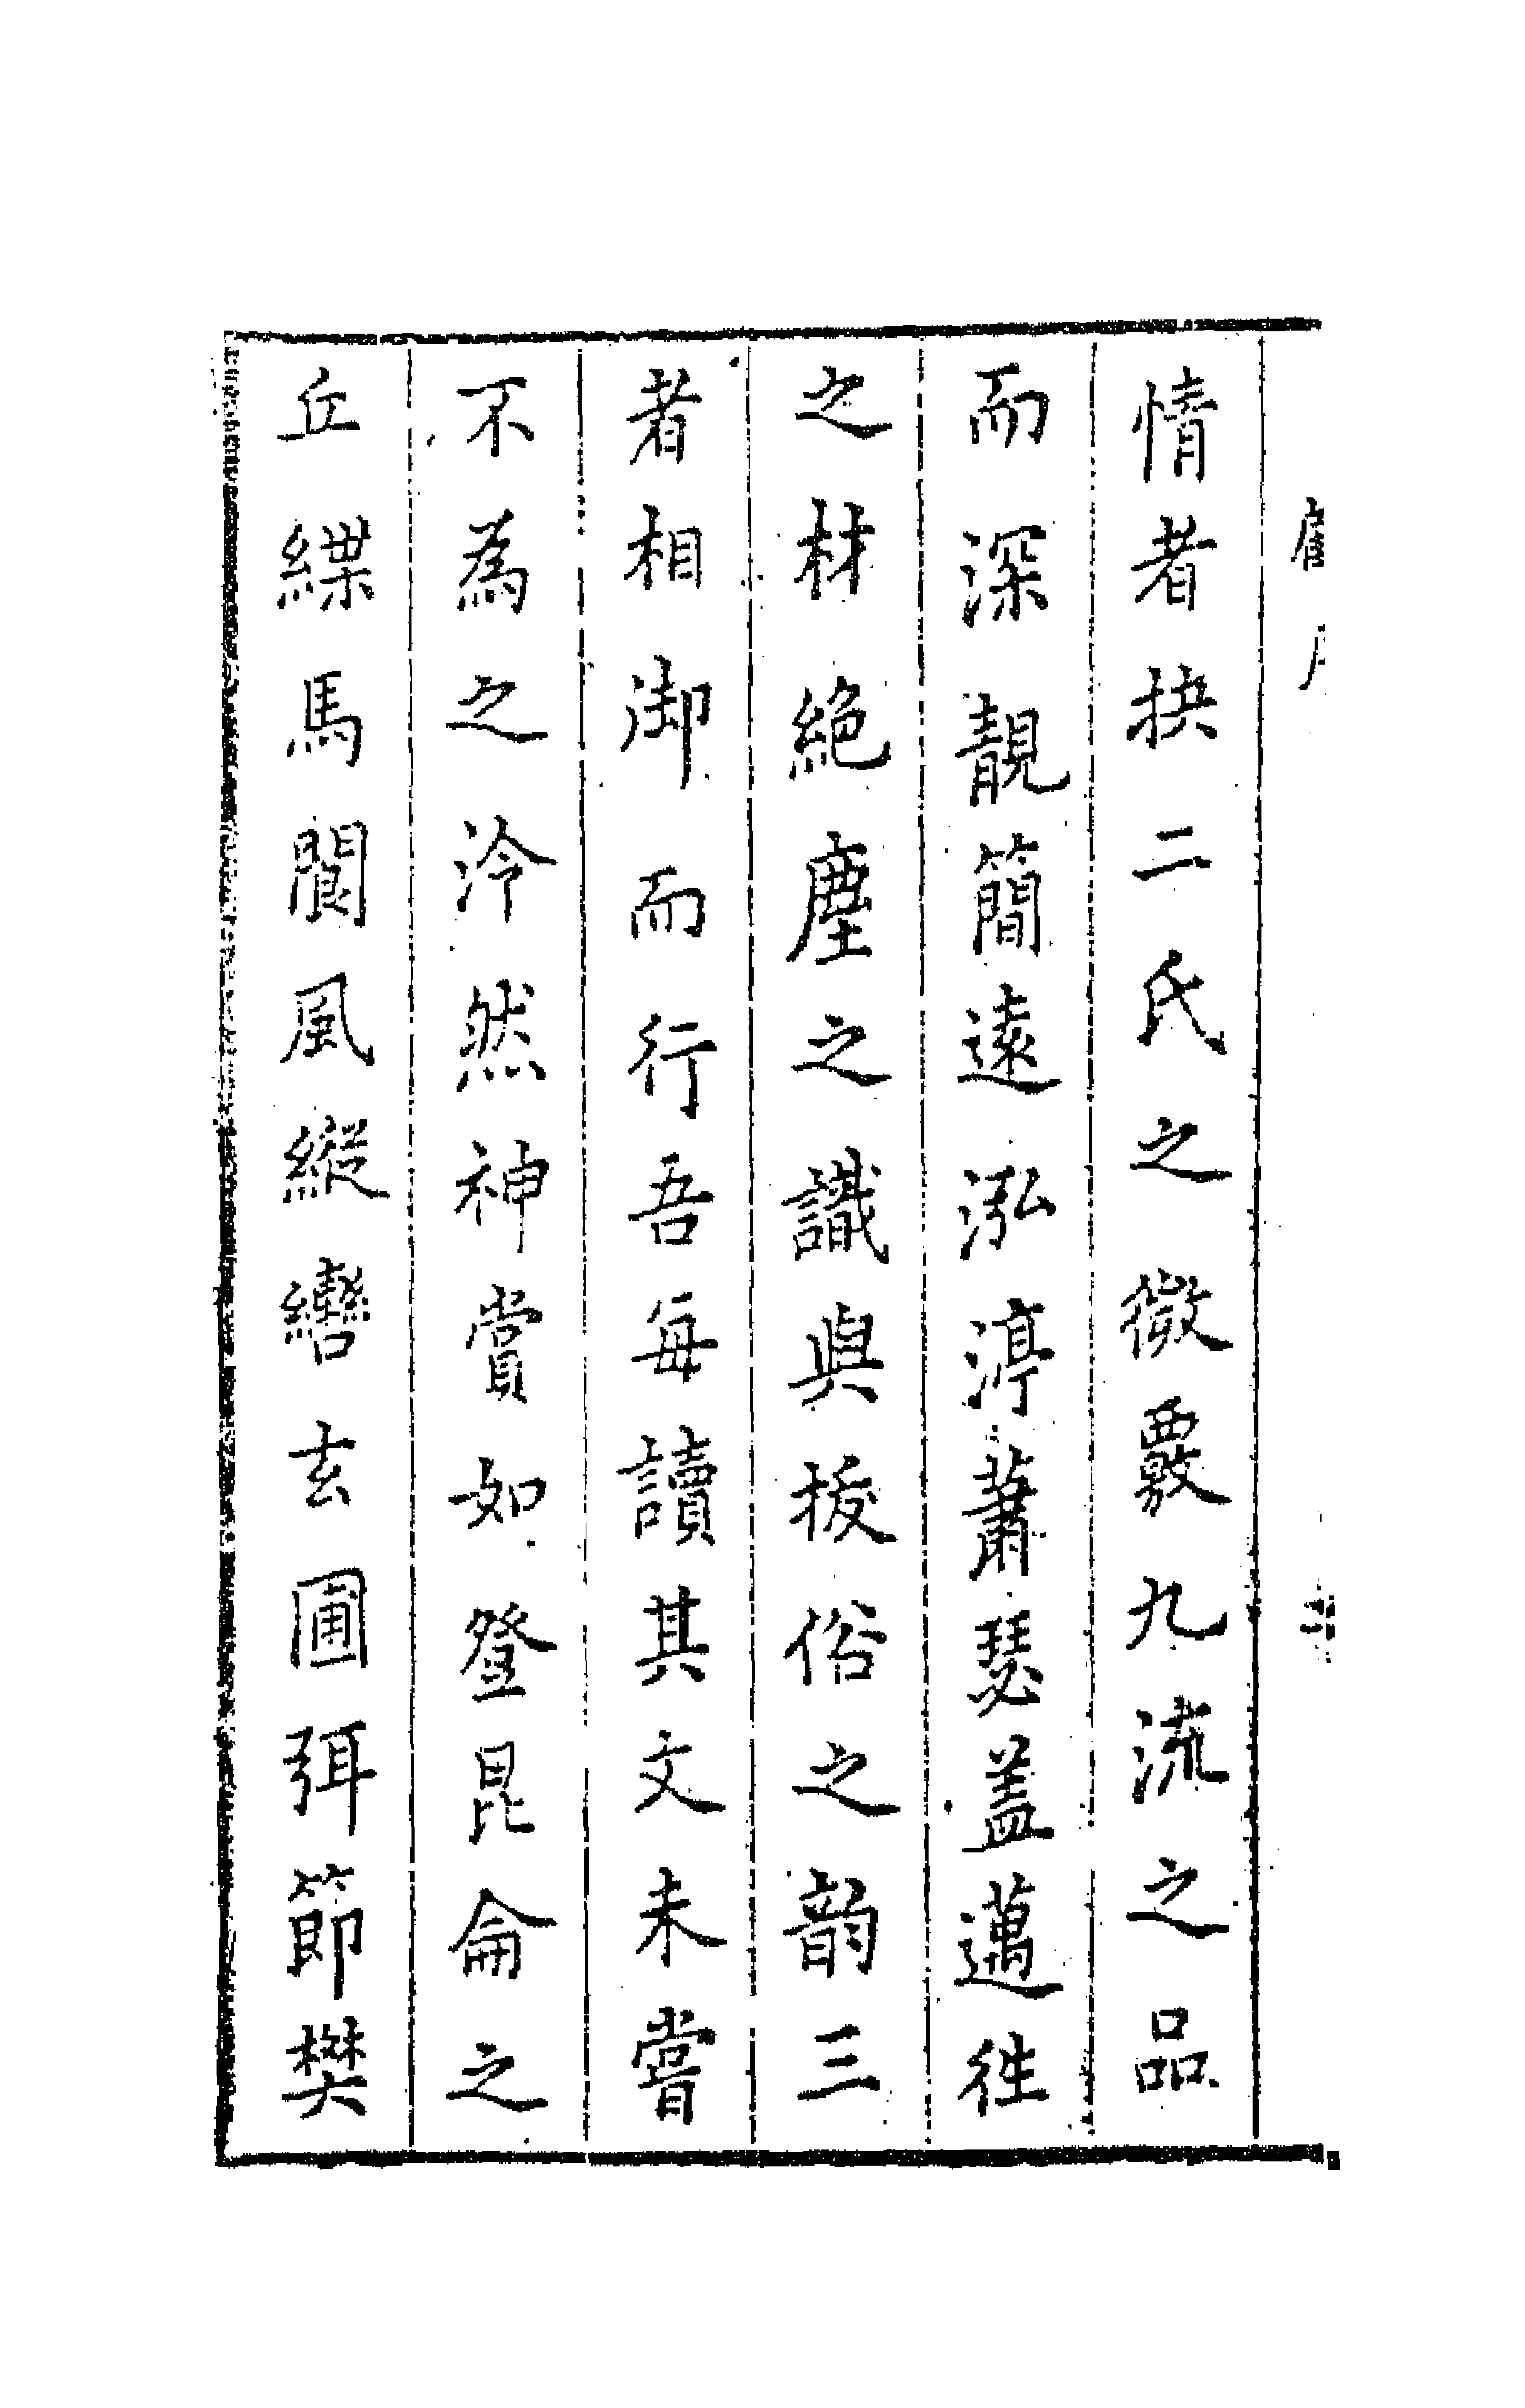 情者抉二氏之徵覈九流之品
而深靚簡遠泓渟蕭瑟蓋邁往
之材絕塵之識與拔俗之韻三
者相御而行吾每讀其文未嘗
不為之泠然神賞如登昆侖之
丘緤馬閬風縱轡玄圃弭節樊